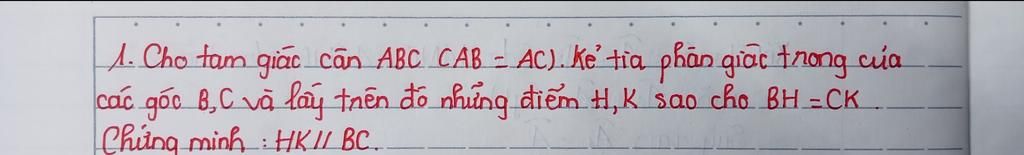 1. Cho tam giác cân ABC (AB = AC). Kẻ tia phân giác trong của
các góc B, C và lấy trên đó những điểm H, K sao cho BH = CK.
Chứng minh : HK // BC.